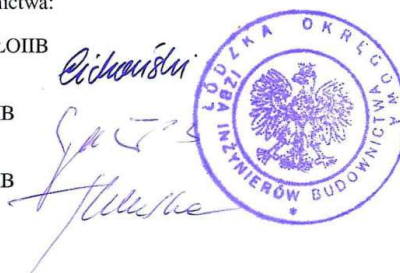 nictwa:
ŁOIIB
Cichoński
IB
IB
ŁÓDZKA OKRĘGOWA
IZBA INŻYNIERÓW BUDOWNICTWA